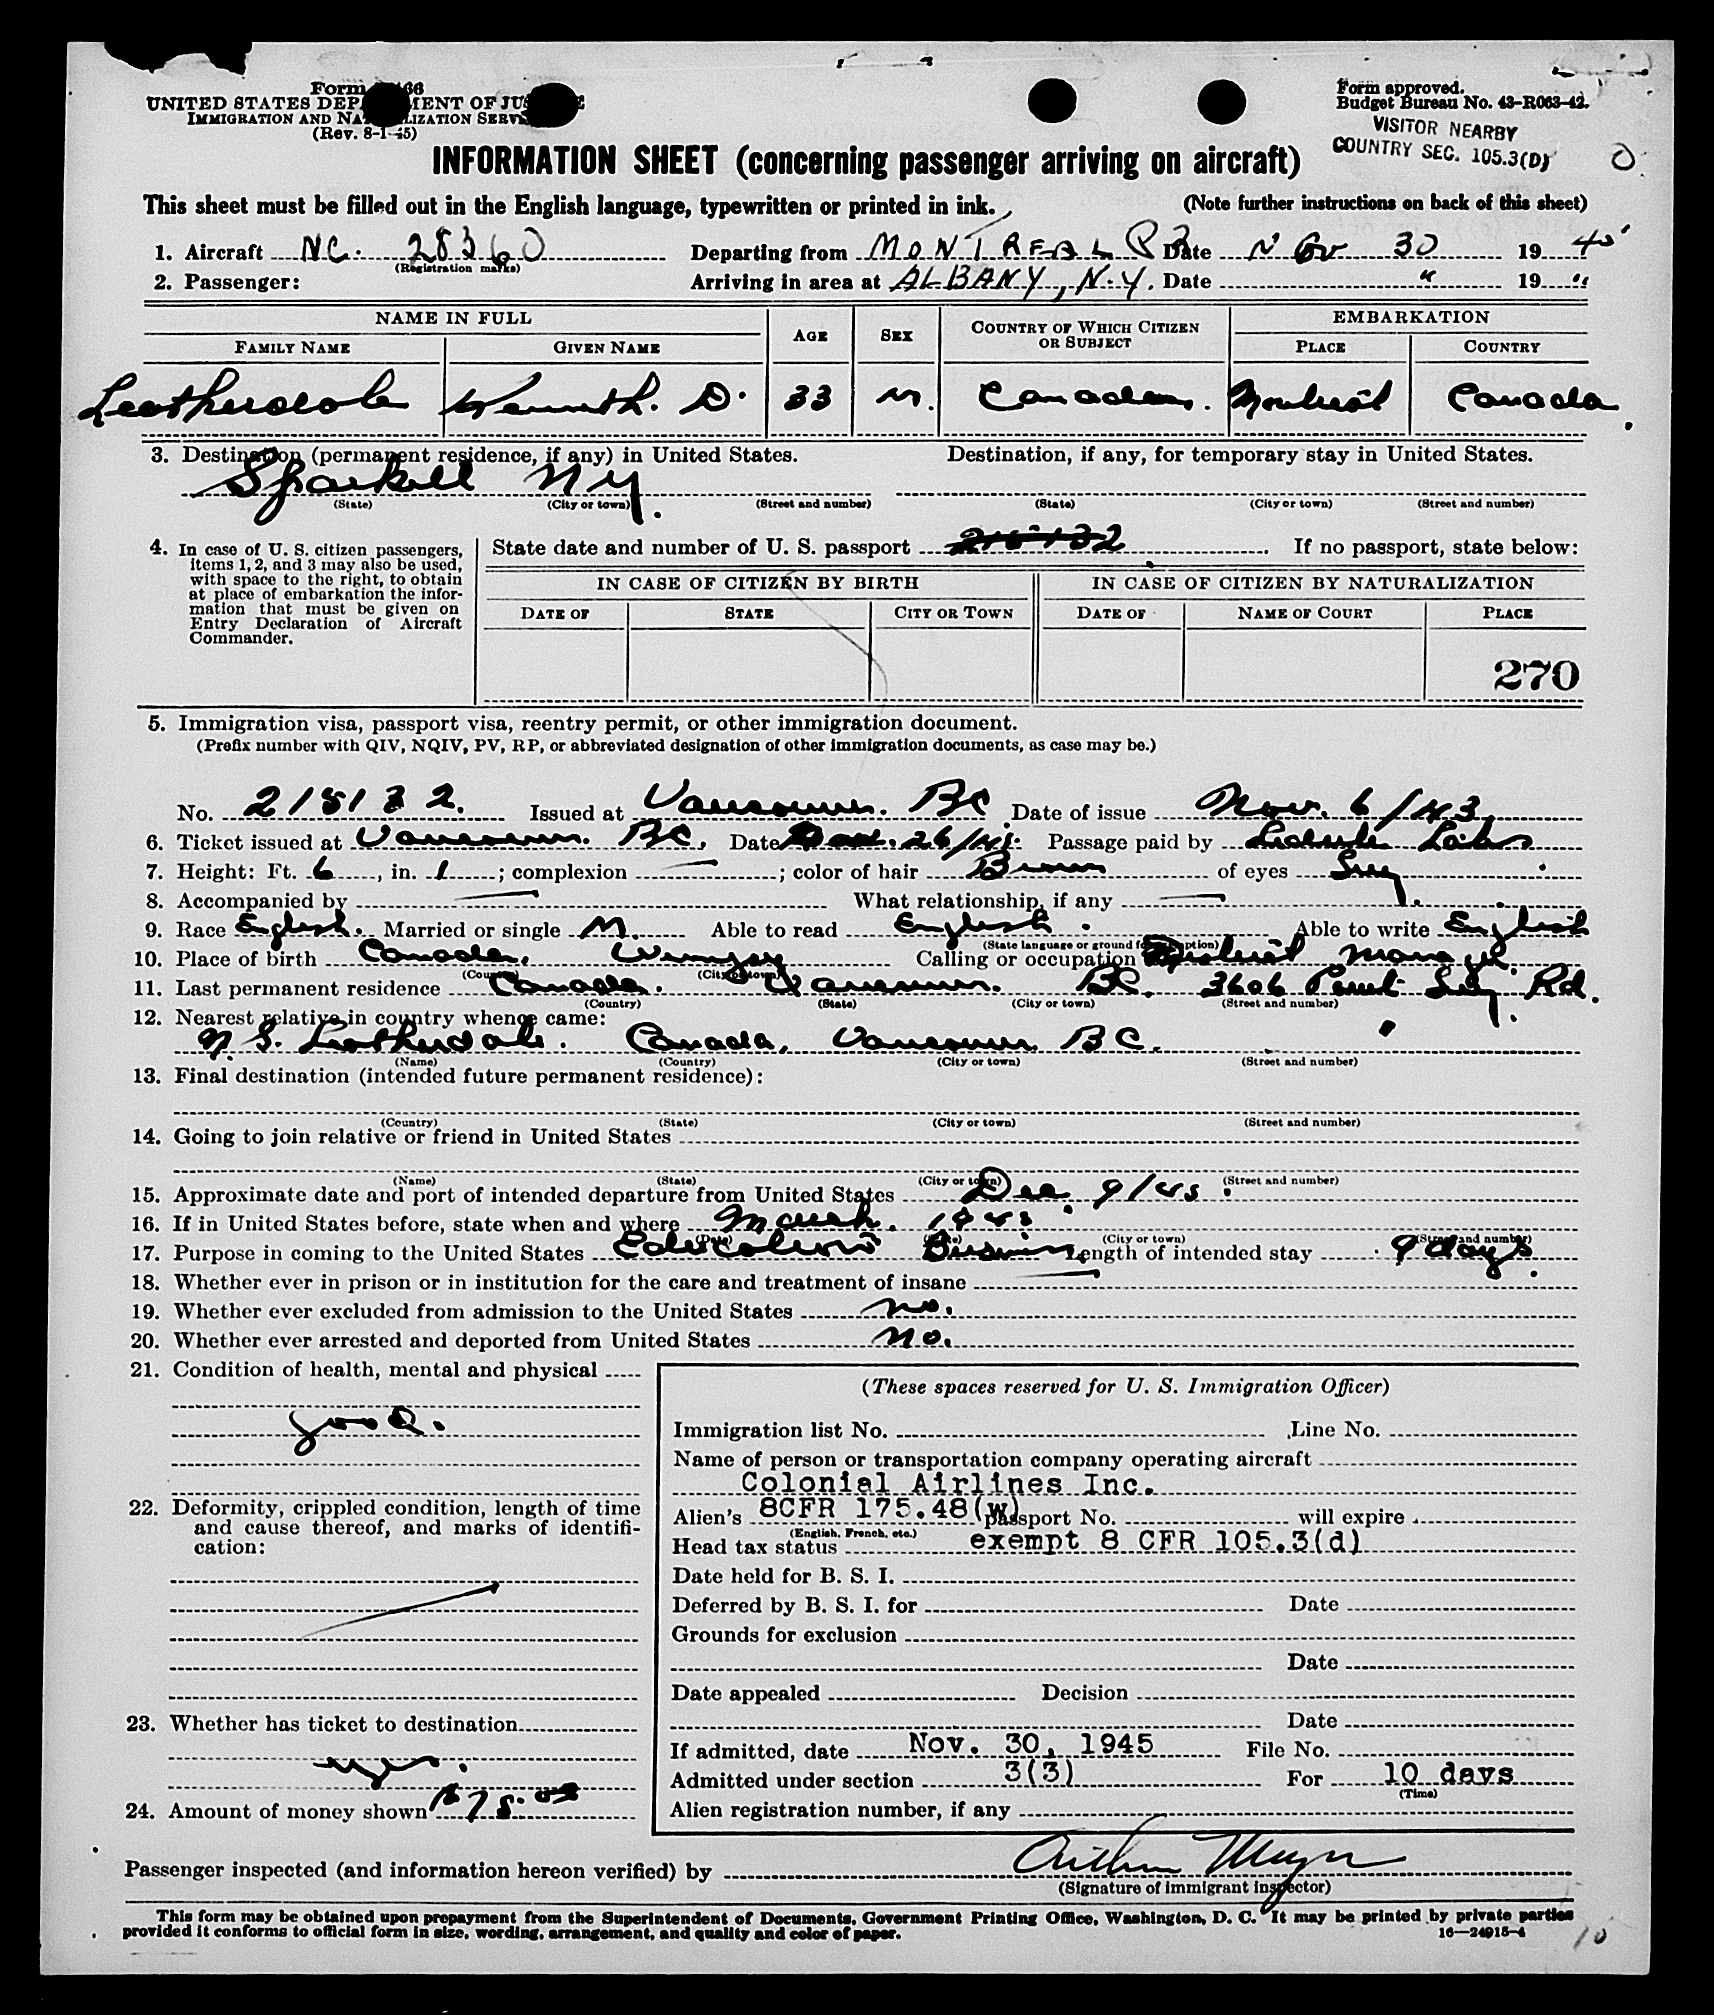 Form 66
UNITED STATES DEP MENT OF JUS E
IMMIGRATION AND NA LIZATION SERV
(Rev. 8-1-45)
Form approved.
Budget Bureau No. 43-R063-42.
VISITOR NEARBY
COUNTRY SEC. 105.3(D)
INFORMATION SHEET (concerning passenger arriving on aircraft)
This sheet must be filled out in the English language, typewritten or printed in ink.
(Note further instructions on back of this sheet)
1. Aircraft NC. 28360 Departing from MONTREAL PQ Date Nov 30 1945
(Registration marks)
2. Passenger: Arriving in area at ALBANY, N.Y. Date " 19 "
NAME IN FULL AGE SEX COUNTRY OF WHICH CITIZEN OR SUBJECT EMBARKATION
FAMILY NAME GIVEN NAME PLACE COUNTRY
Leatherdale Kenneth. D. 33 M. Canadian. Montreal Canada.
3. Destination (permanent residence, if any) in United States. Destination, if any, for temporary stay in United States.
Sparkill NY.
(State) (City or town) (Street and number) (State) (City or town) (Street and number)
4. In case of U. S. citizen passengers, items 1, 2, and 3 may also be used, with space to the right, to obtain at place of embarkation the information that must be given on Entry Declaration of Aircraft Commander.
State date and number of U. S. passport 215132 If no passport, state below:
IN CASE OF CITIZEN BY BIRTH IN CASE OF CITIZEN BY NATURALIZATION
DATE OF STATE CITY OR TOWN DATE OF NAME OF COURT PLACE
270
5. Immigration visa, passport visa, reentry permit, or other immigration document.
(Prefix number with QIV, NQIV, PV, RP, or abbreviated designation of other immigration documents, as case may be.)
No. 215132. Issued at Vancouver. BC Date of issue Nov. 6/43
6. Ticket issued at Vancouver. BC. Date 26/45. Passage paid by Lederle Labs
7. Height: Ft. 6, in. 1; complexion —; color of hair Brown of eyes Grey.
8. Accompanied by — What relationship, if any —
9. Race English. Married or single M. Able to read English. Able to write English
(State language or ground for exemption)
10. Place of birth Canada, Winnipeg Calling or occupation District Manager.
(Country) (City or town)
11. Last permanent residence Canada. Vancouver. BC. 3606 Point Grey Rd.
(Country) (State) (City or town) (Street and number)
12. Nearest relative in country whence came:
Leatherdale. Canada, Vancouver BC.
(Name) (Country) (City or town) (Street and number)
13. Final destination (intended future permanent residence):
(Country) (State) (City or town) (Street and number)
14. Going to join relative or friend in United States
(Name) (State) (City or town) (Street and number)
15. Approximate date and port of intended departure from United States Dec. 9/45.
16. If in United States before, state when and where March. 1945.
(Date) (State) (City or town) (Street and number)
17. Purpose in coming to the United States Business Length of intended stay 9 days.
18. Whether ever in prison or in institution for the care and treatment of insane —
19. Whether ever excluded from admission to the United States no.
20. Whether ever arrested and deported from United States no.
21. Condition of health, mental and physical
good.
22. Deformity, crippled condition, length of time and cause thereof, and marks of identification:
23. Whether has ticket to destination
yes.
24. Amount of money shown $75.00
(These spaces reserved for U. S. Immigration Officer)
Immigration list No. Line No.
Name of person or transportation company operating aircraft
Colonial Airlines Inc.
Alien's 8CFR 175.48(W) passport No. will expire
(English, French, etc.)
Head tax status exempt 8 CFR 105.3(d)
Date held for B. S. I.
Deferred by B. S. I. for Date
Grounds for exclusion
Date
Date appealed Decision
Date
If admitted, date Nov. 30, 1945 File No.
Admitted under section 3(3) For 10 days
(Time)
Alien registration number, if any
Passenger inspected (and information hereon verified) by Arthur
(Signature of immigrant inspector)
This form may be obtained upon prepayment from the Superintendent of Documents, Government Printing Office, Washington, D. C. It may be printed by private parties
provided it conforms to official form in size, wording, arrangement, and quality and color of paper.
16—24915-4
10